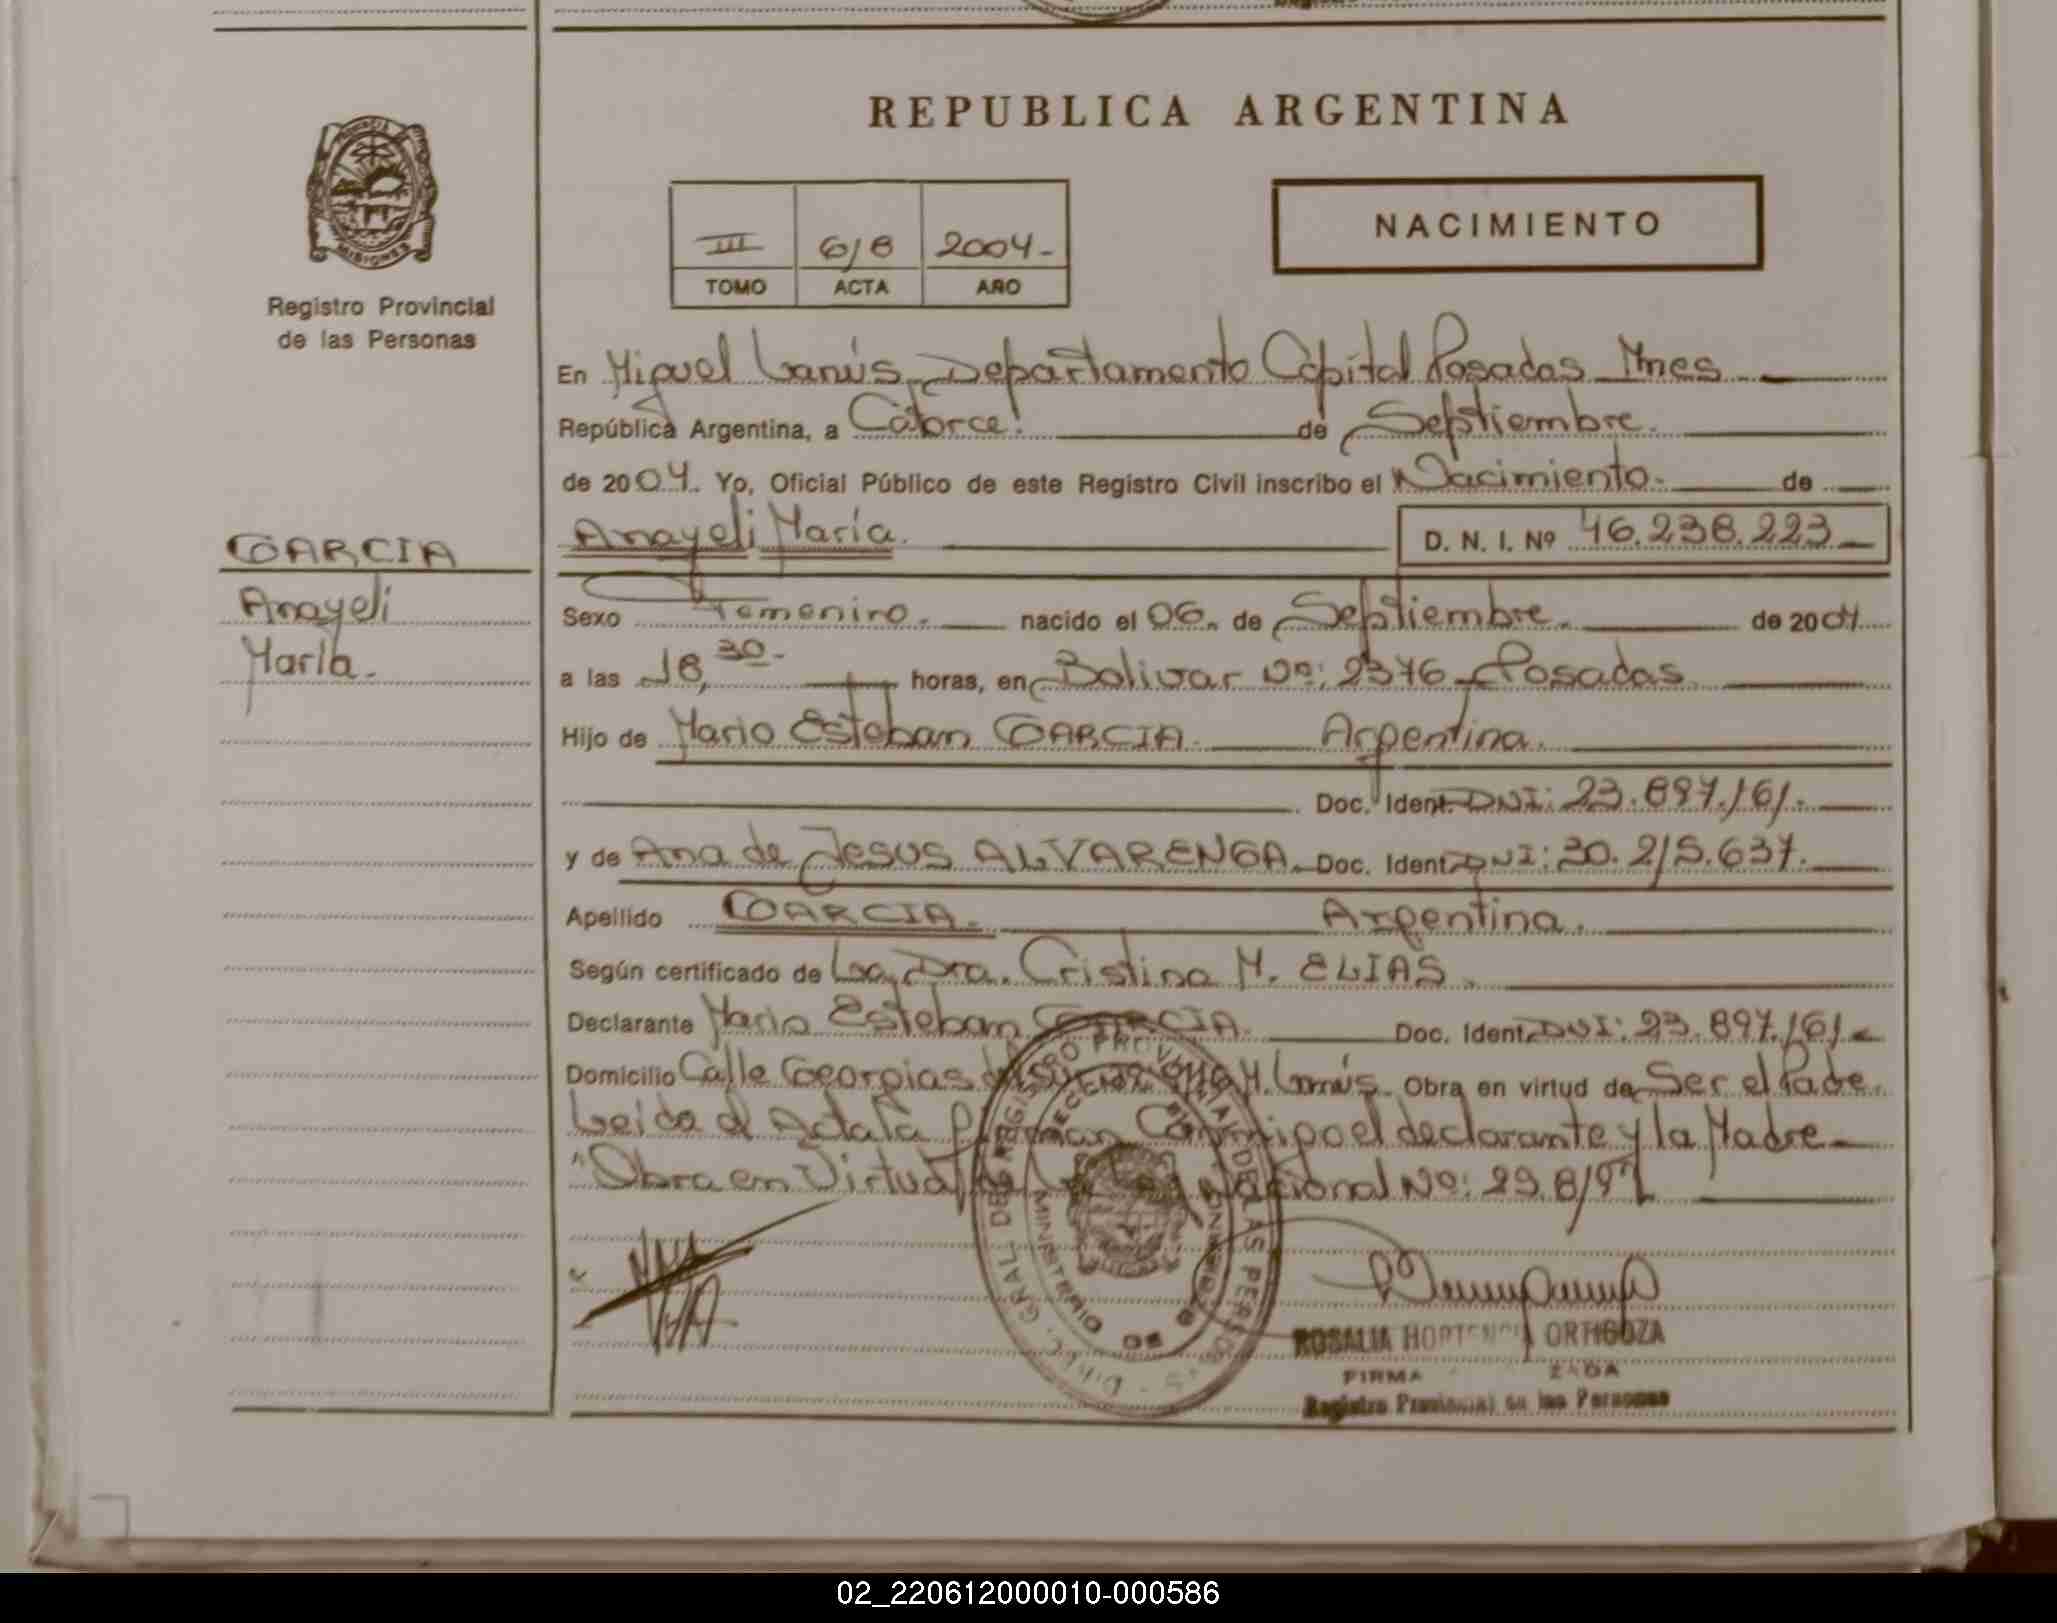 REPUBLICA ARGENTINA
NACIMIENTO
III 618 2004-
TOMO ACTA AÑO
MISIONES
Registro Provincial
de las Personas
En Miguel Lanús, Departamento Capital Posadas Mnes
República Argentina, a Catorce. de Septiembre.
de 2004. Yo, Oficial Público de este Registro Civil inscribo el Nacimiento. de
GARCIA
Anayeli
María.
Anayeli María. D. N. I. Nº 46.238.223
Sexo Femenino. nacido el 06. de Septiembre. de 2004
a las 18,30- horas, en Bolivar Nº: 2376 Posadas
Hijo de Mario Esteban GARCIA. Argentina.
Doc. Ident. DNI: 23.897.161.
y de Ana de Jesus ALVARENGA. Doc. Ident. DNI: 30.215.637.
Apellido GARCIA. Argentina.
Según certificado de La Dra. Cristina M. ELIAS.
Declarante Mario Esteban GARCIA. Doc. Ident. DNI: 23.897.161
Domicilio Calle Georgias del Sur M. Lanús. Obra en virtud de Ser el Padre.
Leida el Acta la Firman Conmigo el declarante y la Madre
"Obra en Virtud de Nacional Nº:
ROSALIA HORTENCIA ORTIGOZA
FIRMA
Registro Provincial de las Personas
02_220612000010-000586